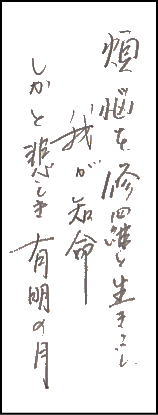 煩悩を修羅と生きこし
我が知命
しかと悲しき有明の月